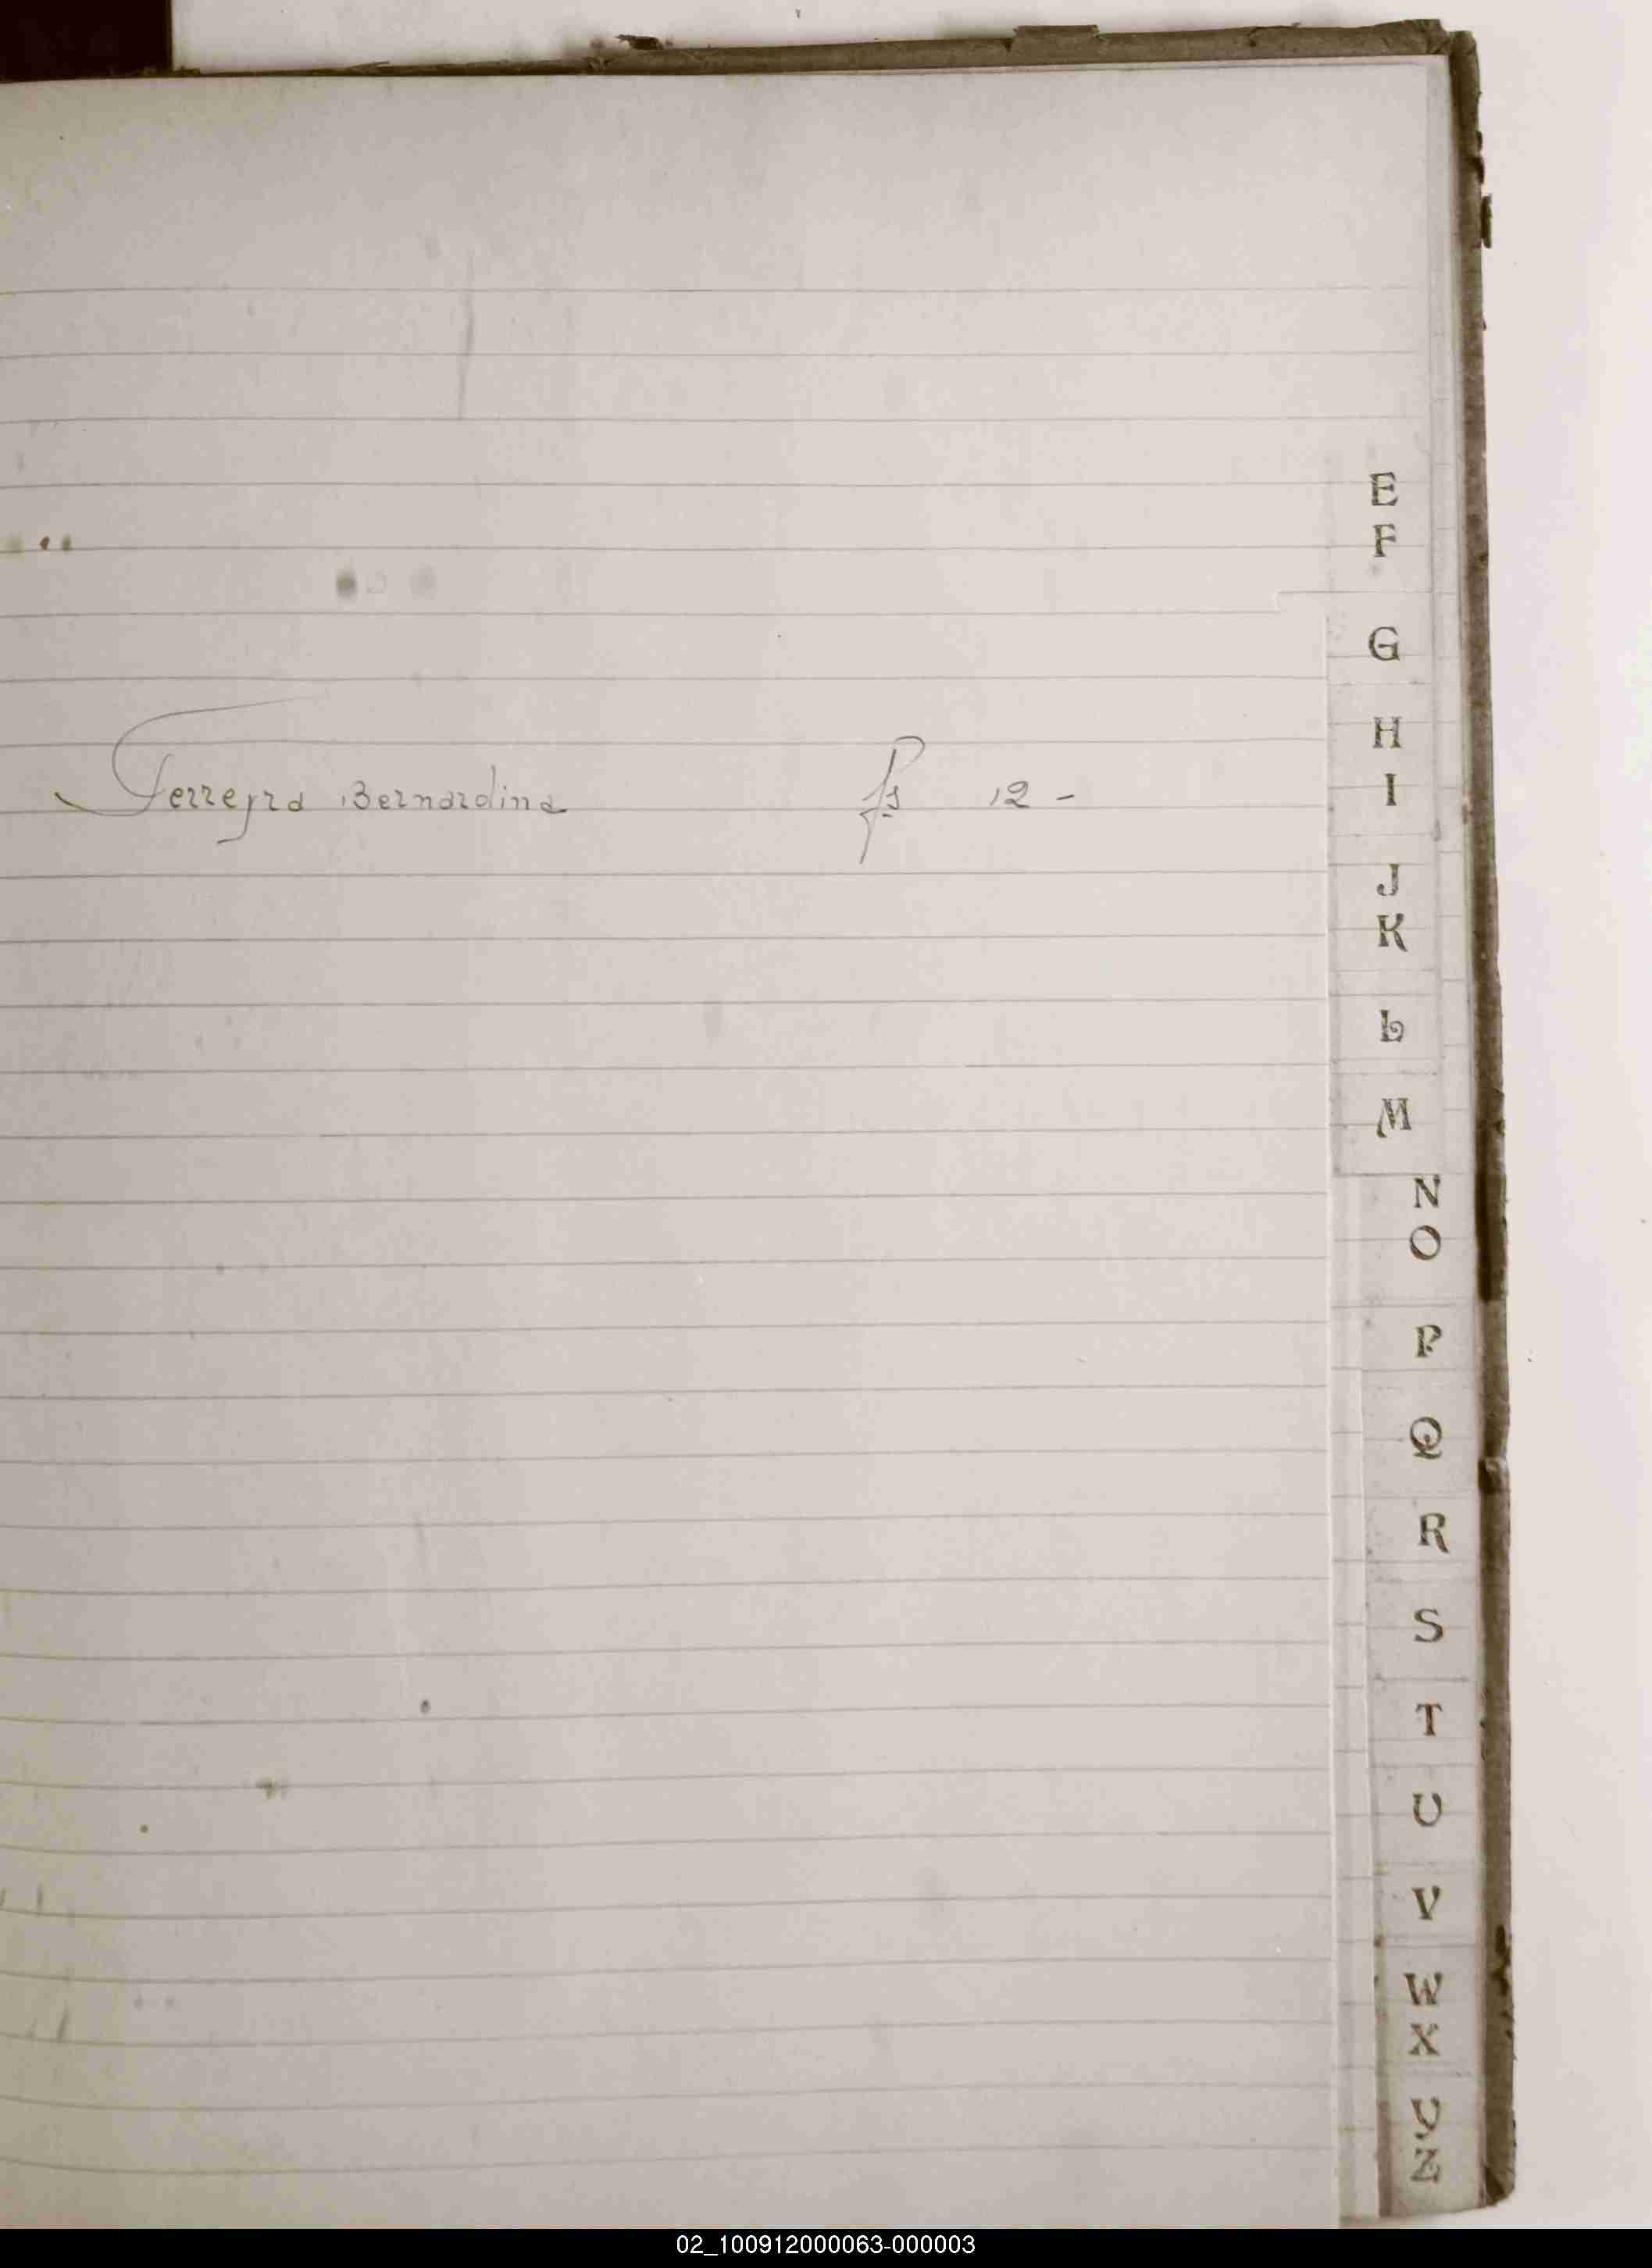 E
F
G
H
Ferreyra Bernardina fs 12 -
I
J
K
L
M
N
O
P
Q
R
S
T
U
V
W
X
Y
Z
02_100912000063-000003